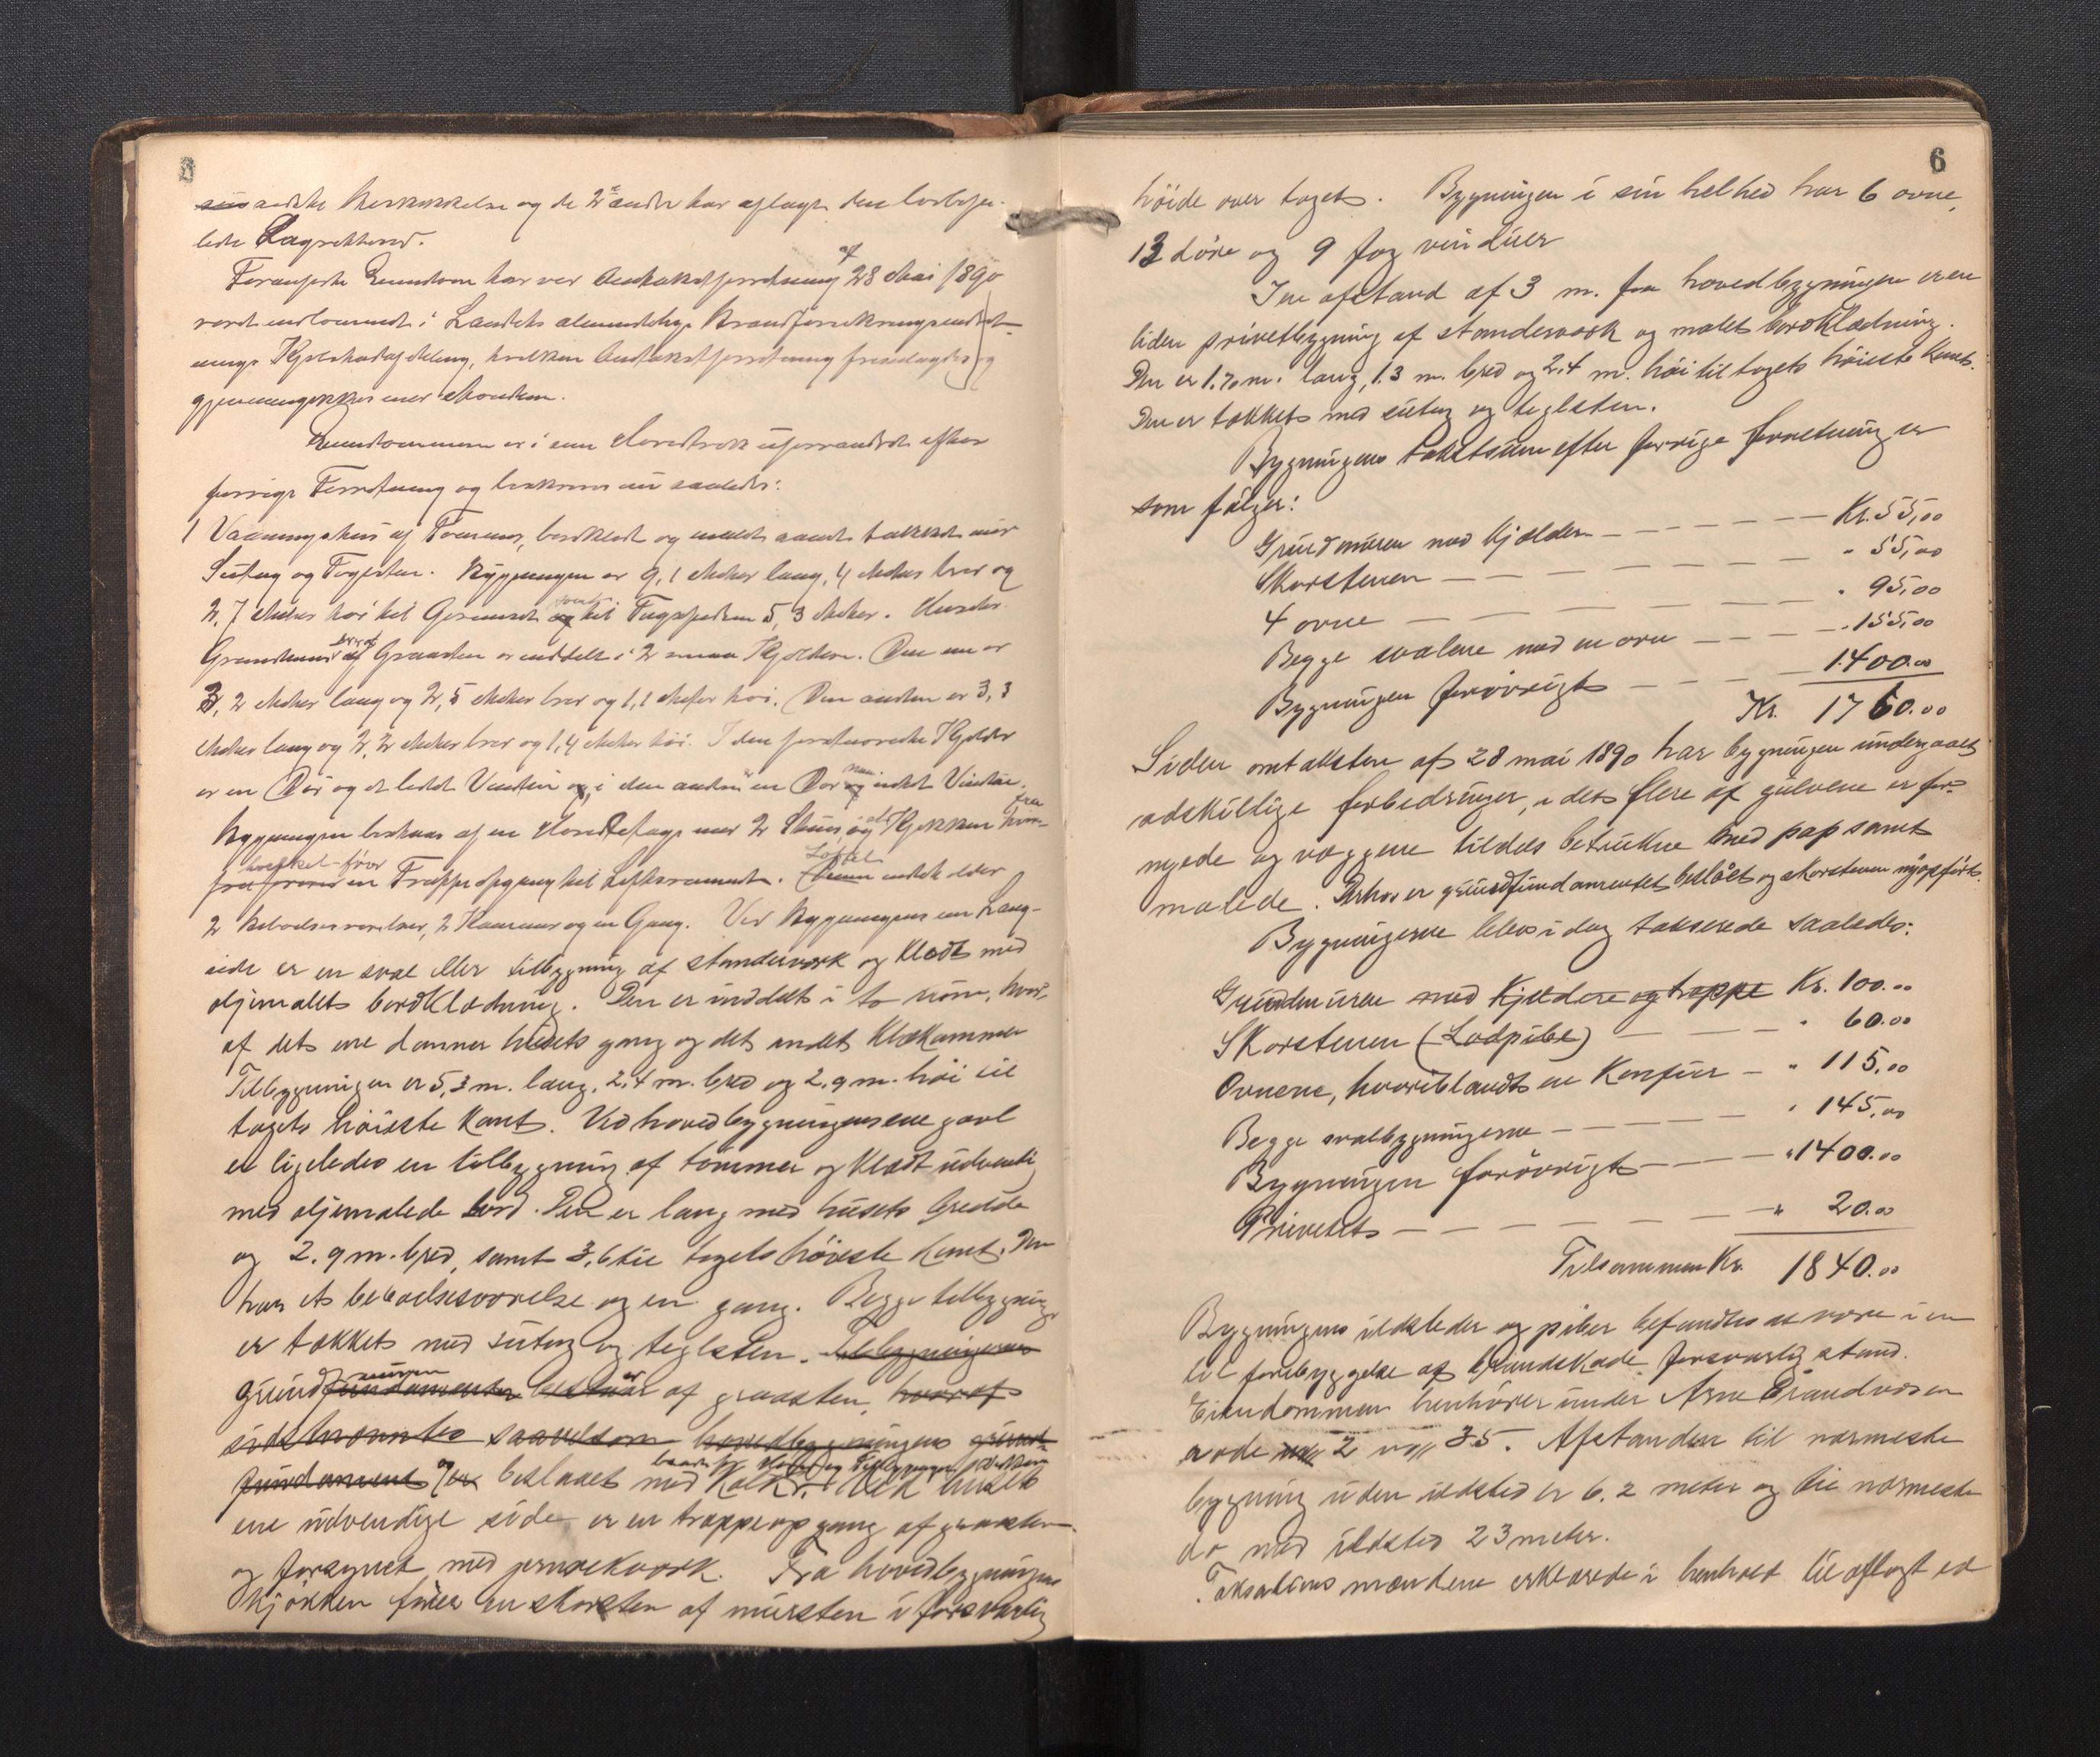 aadske Beskikkelse og de 2de andre har aflagt den lovbefa-
lede Lagretteed.
Foranførte Eiendom har ved Omtaxtforretning af 28 Mai 1890
været indlemmet i Landets almindelige Brandforsikringsindret-
nings Kjøbstadafdeling, hvilken Omtaxtforretning fremlagdes og
gjennemgikkes med Mændene.
Eiendommen er i sine Hovedtræk uforandret efter
forrige Forretning og beskrives nu saaledes:
1 Vaaningshus af Tømmer, bordklædt og malet samt tækket med
Sutag og Tagsten. Bygningen er 9,1 Meter lang, 4 Meter bred og
2,7 Meter høi til Gesimsen og til Tagspidsen 5,3 Meter. Husets
Grundmur er af Graasten er inddelt i 2 smaa Kjeldere. Den ene er
3,2 Meter lang og 2,5 Meter bred og 1,1 Meter høi. Den anden er 3,3
Meter lang og 2,2 Meter bred og 1,4 Meter høi. I den førstnævnte Kjelder
er en Dør og et lidet Vindue og i den anden er en Dør men intet Vindue.
Bygningen bestaar af en Hovedetage med 2 Stuer og et Kjøkken hvor-
fra en Trappeopgang til Loftsrummet. Loftet indeholder
2 Beboelsesværelser, 2 Kammer og en Gang. Ved Bygningens ene Lang-
side er en sval eller tilbygning af stenderværk og klædt med
oljemalets bordklædning. Den er inddelt i to rum, hvor-
af dets ene danner husets gang og det andet Klækammer
Tilbygningen er 5,3 m. lang, 2,4 m. bred og 2.9 m. høi til
tagets høieste Kant. Ved hovedbygningens ene gavl
er ligeledes en tilbygning af tømmer og klædt udvendig
med oljemalede bord. Den er lang med husets bredde
og 2.9 m. bred, samt 3.6 til tagets høieste kant. Den
har et beboelsesværelse og en gang. Begge tilbygning
er tækket med sutag og teglsten. Tilbygningernes
grundfundamenter muren bestaar er af graasten, hvoraf
sidstnævnte saavelsom hovedbygningens grund-
fundament og er beslaaet med Kalk. Ved husets
ene udvendige side er en trappeopgang af graasten
og forsynet med jernrekværk. Fra hovedbygningens
Kjøkken fører en skorsten af mursten i forsvarlig
6
høide over taget. Bygningen i sin helhed har 6 ovne,
13 døre og 9 fag vinduer
I en afstand af 3 m. fra hovedbygningen er en
liden privetbygning af stenderværk og malet bordklædning.
Den er 1.70 m. lang, 1.3 m. bred og 2.4 m. høi til tagets høieste Kant.
Den er tækket med sutag og teglsten.
Bygningens takstsum efter forrige forretning er
som følger:
Grundmuren med kjelder — — — Kr. 55,00
Skorstenen — — — " 55,00
4 ovne — — — " 95,00
Begge svalene med en ovn — — — " 155,00
Bygningen forøvrigt — — — 1400.00
Kr. 1760.00
Siden omtaksten af 28 mai 1890 har bygningen undergaaet
adskillige forbedringer, idet flere af gulvene er for-
nyede og væggene tildels betrukne med pap samt
malede. Derhos er grundfundamentet beslået og skorstenen nyopført.
Bygningerne blev i dag takserede saaledes:
Grundmuren med Kjeldere og trappe Kr. 100.00
Skorstenen (Lodpibe) — — — " 60.00
Ovnene, hvoriblandt en Komfur — " 115,00
Begge svalbygningerne — — — " 145,00
Bygningen forøvrigt — — — " 1400.00
Privetet — — — " 20.00
Tilsammen Kr. 1840.00
Bygningens ildsteder og piber befandtes at være i en
til forebyggelse af brandskade forsvarlig stand.
Eiendommen henhører under Arne
rode 2 35. Afstanden til nærmeste
bygning uden ildsted er 6.2 meter og til nærmeste
do med ildsted 23 meter.
Taksationsmændene erklærede i henhold til aflagt ed